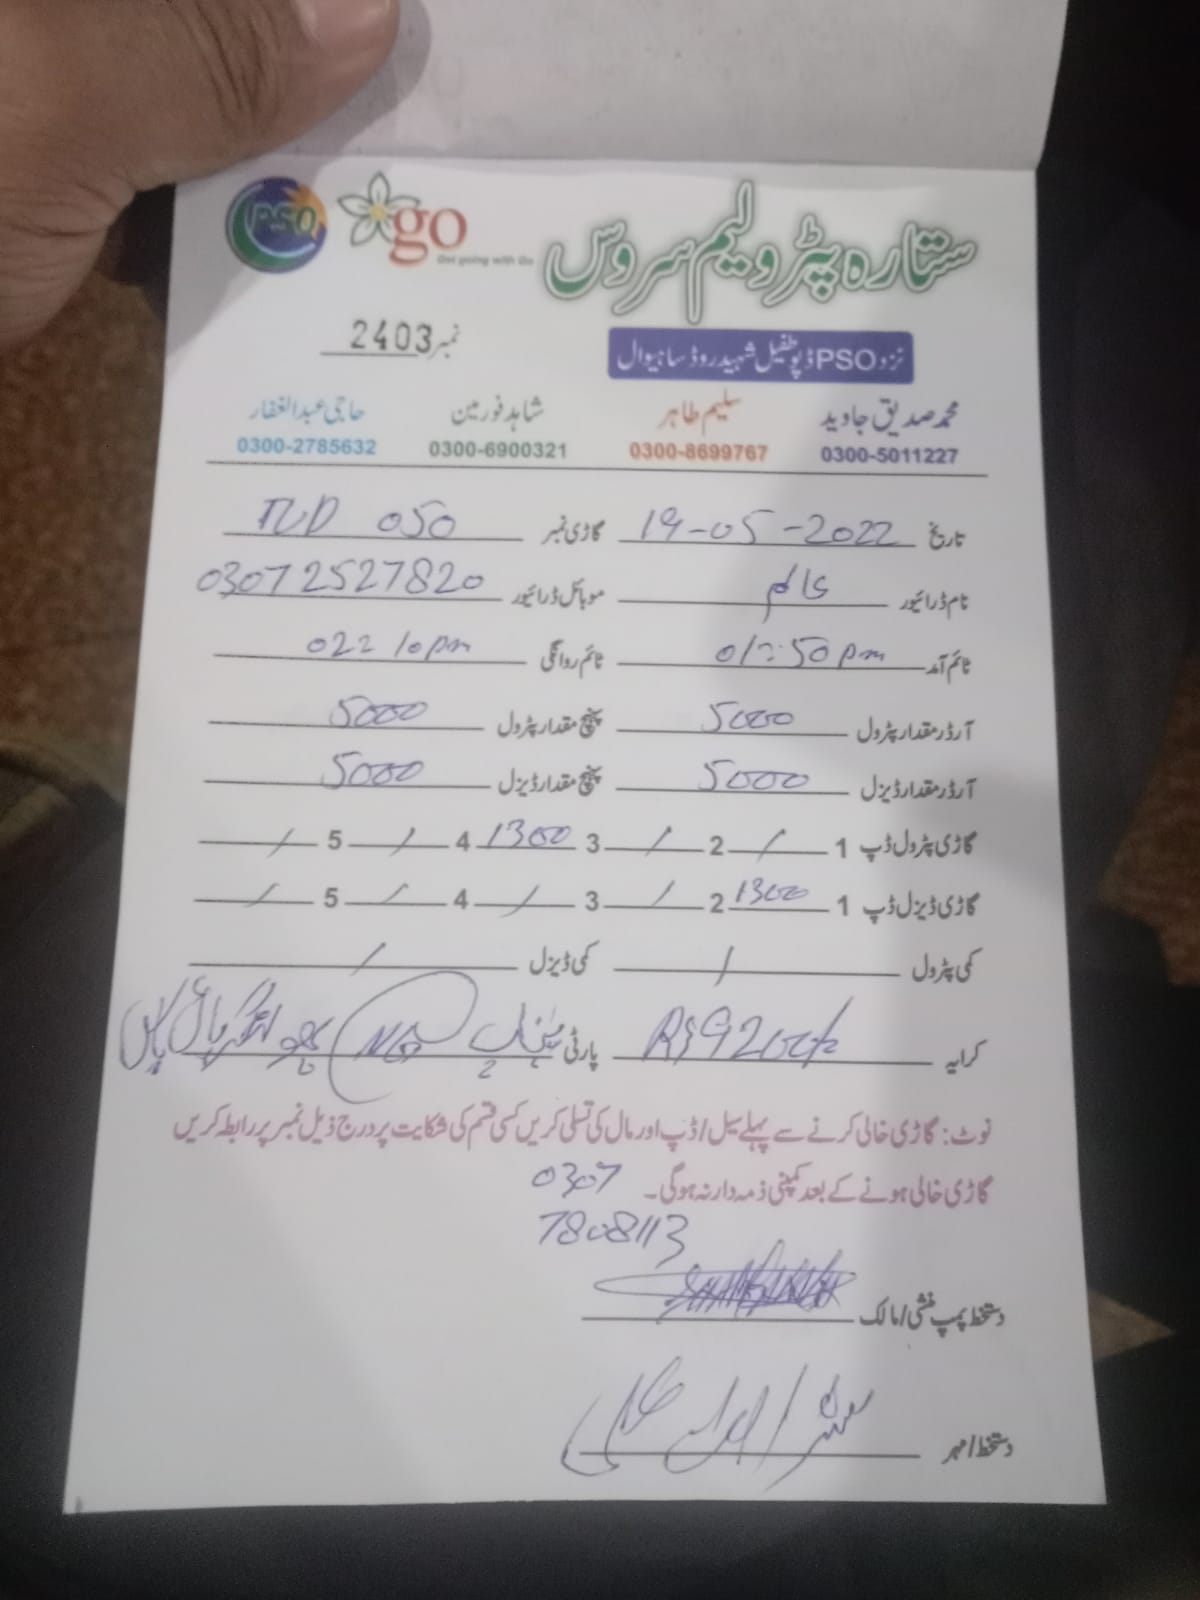 PSO go ستارہ پٹرولیم سروس
Get going with Go
نمبر 2403
نزد PSO ڈپو طفیل شہید روڈ ساہیوال
محمد صدیق جاوید سلیم طاہر شاہد فورمین حاجی عبدالغفار
0300-5011227 0300-8699767 0300-6900321 0300-2785632
تاریخ 19-05-2022 گاڑی نمبر TUD 050
نام ڈرائیور عالم موبائل ڈرائیور 03072527820
ٹائم آمد 01:50pm ٹائم روانگی 02:10pm
آرڈر مقدار پٹرول 5000 پہنچ مقدار پٹرول 5000
آرڈر مقدار ڈیزل 5000 پہنچ مقدار ڈیزل 5000
گاڑی پٹرول ڈپ 1 / 2 / 3 1300 4 / 5 /
گاڑی ڈیزل ڈپ 1 1300 2 / 3 / 4 / 5 /
کمی پٹرول / کمی ڈیزل /
کرایہ پارٹی
نوٹ: گاڑی خالی کرنے سے پہلے سیل/ڈپ اور مال کی تسلی کریں کسی قسم کی شکایت پر درج ذیل نمبر پر رابطہ کریں
گاڑی خالی ہونے کے بعد کمپنی ذمہ دار نہ ہوگی۔ 0307
7808113
دستخط پمپ منشی/مالک
دستخط/مہر